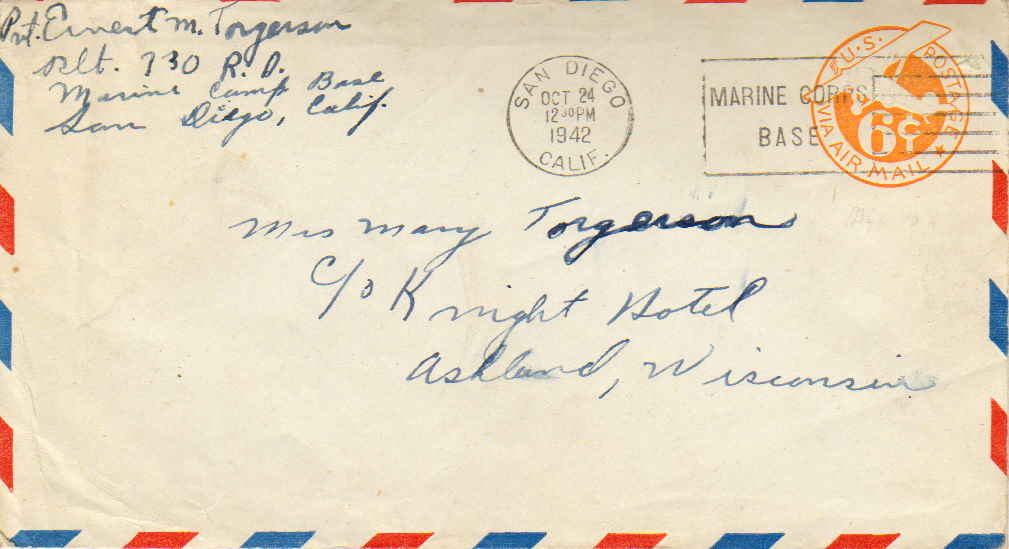 Pvt. Ernest M. Torgerson
Plt. 730 R.D.
Marine Camp Base
San Diego, Calif.
SAN DIEGO
OCT 24
12 30 PM
1942
CALIF.
MARINE CORPS
BASE
U.S. POSTAGE
6¢
VIA AIR MAIL
Mrs Mary Torgerson
c/o Knight Hotel
Ashland, Wisconsin